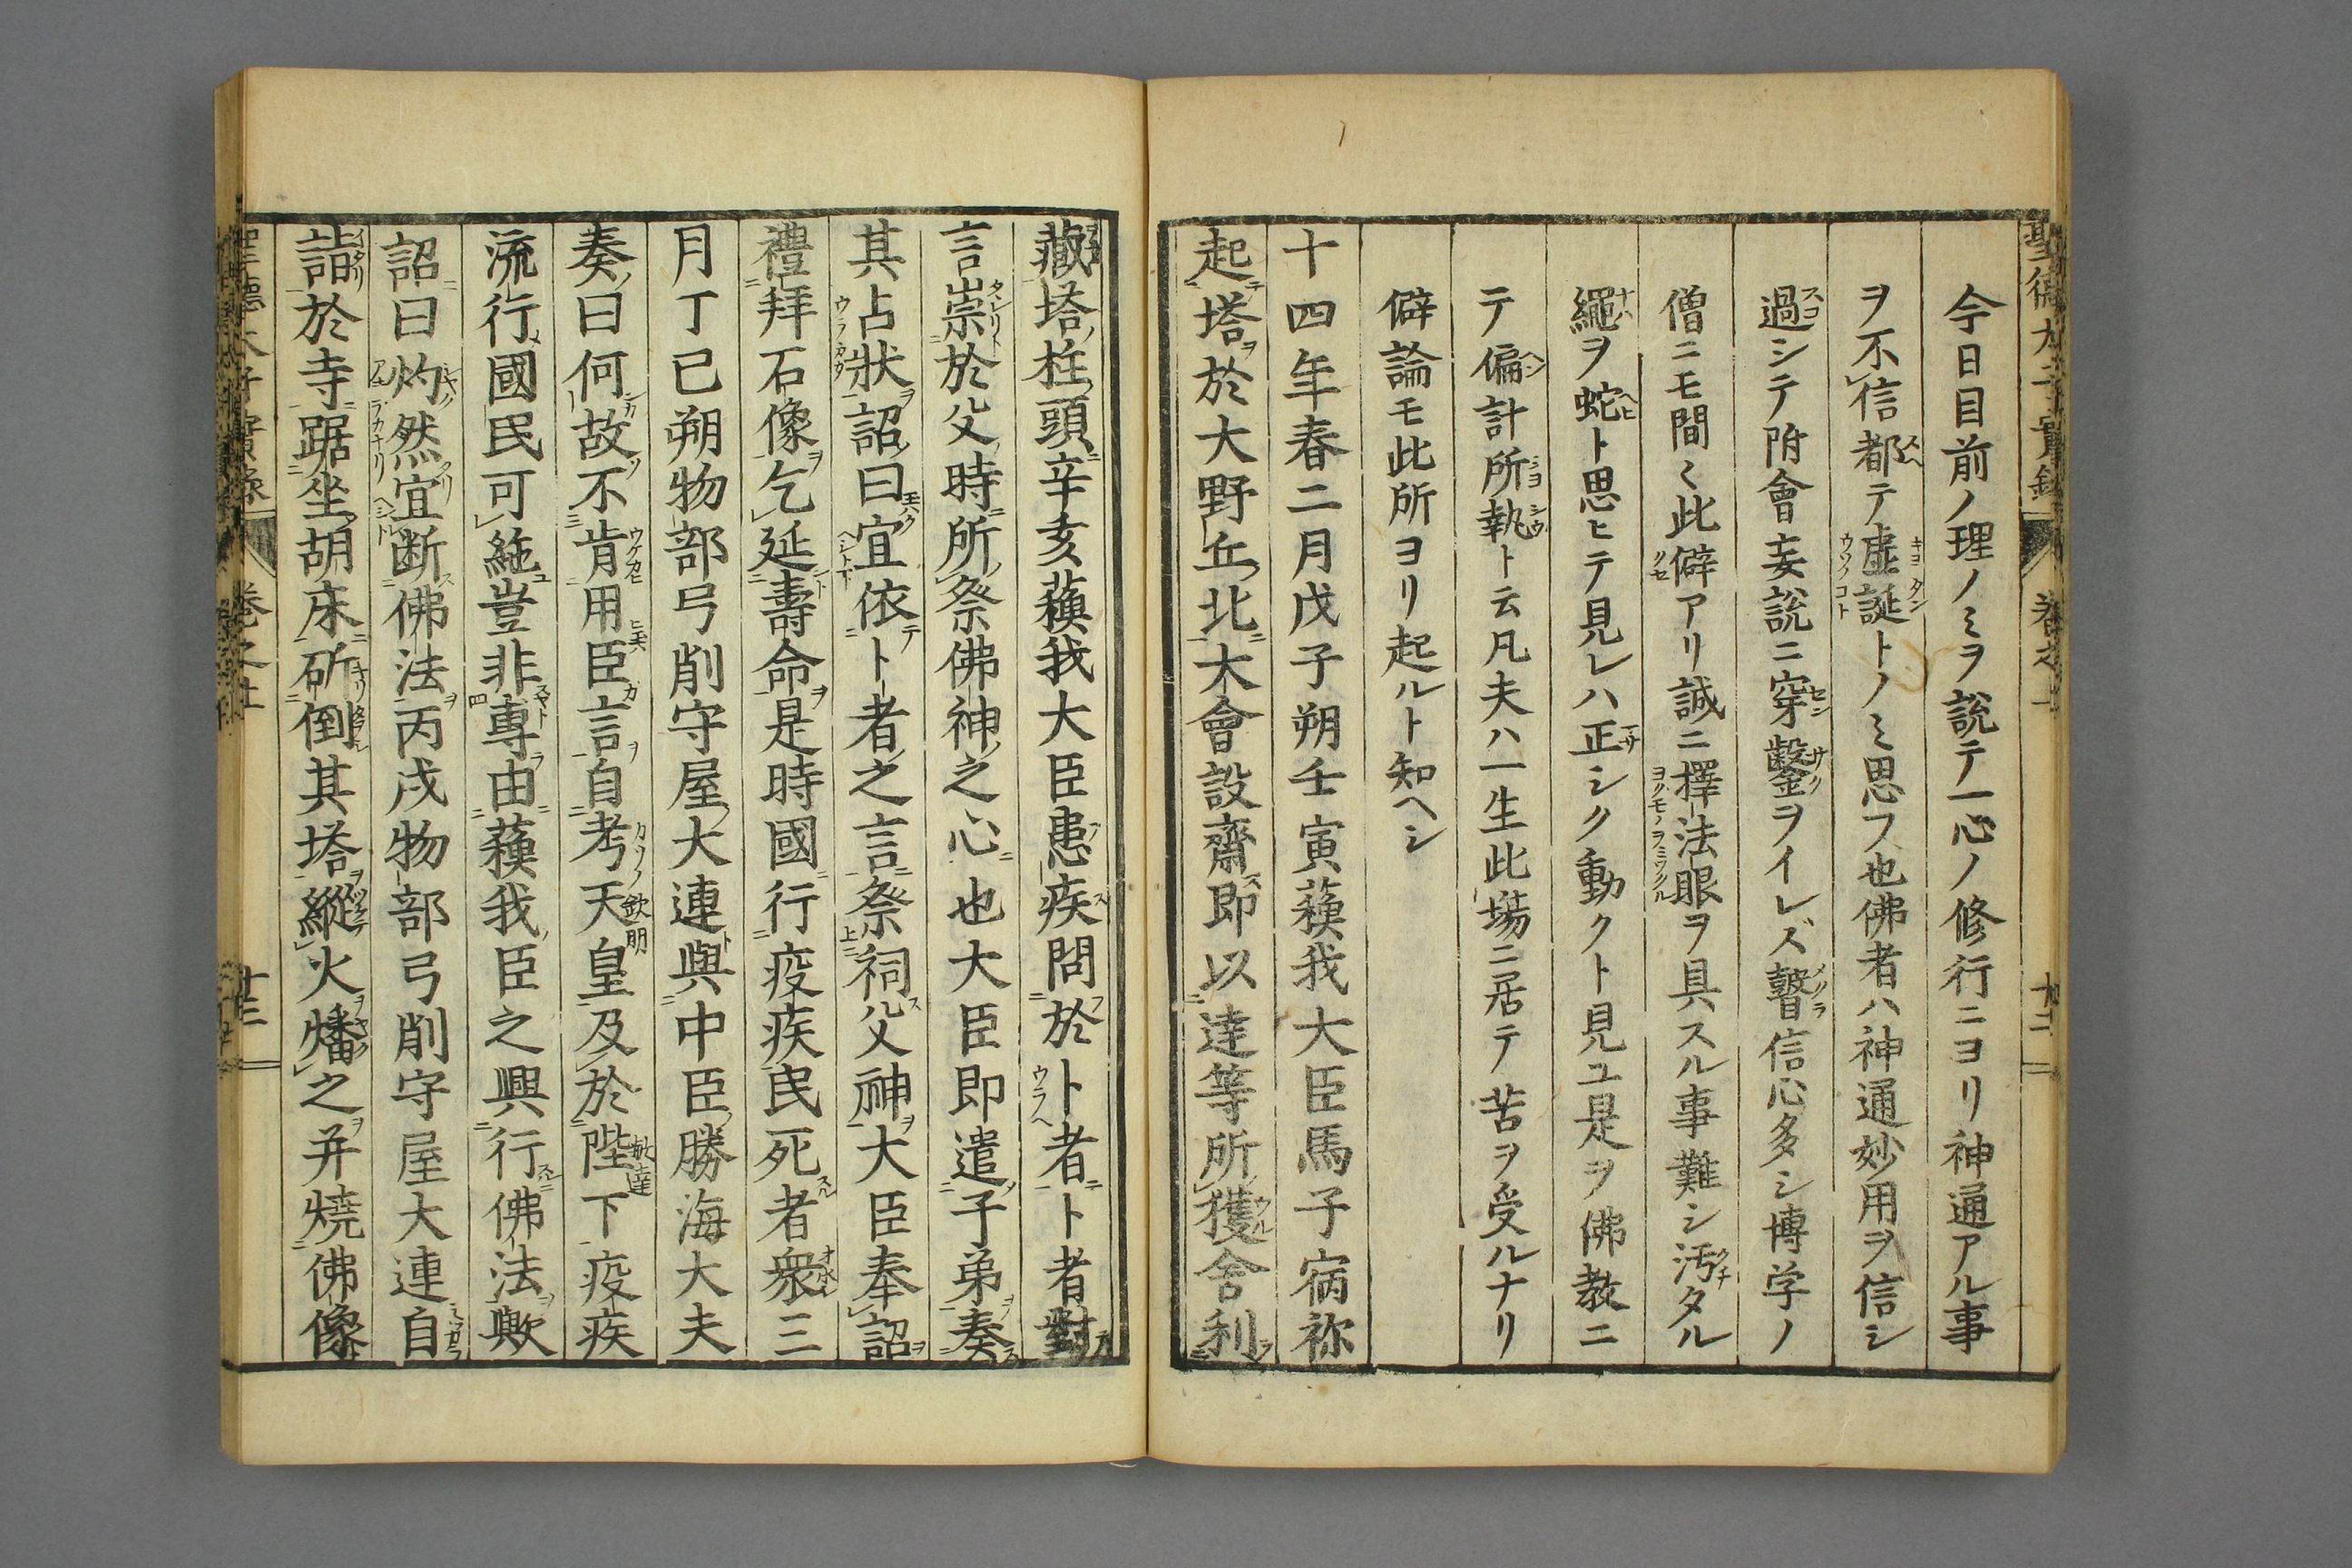 今日目前ノ理ノミヲ説テ一心ノ修行ニヨリ神通アル事
ヲ不信都テ虚誕トノミ思フ也佛者ハ神通妙用ヲ信シ
過シテ附會妄説ニ穿鑿ヲイレズ瞽信心多シ博学ノ
僧ニモ間〻此僻アリ誠ニ擇法眼ヲ具スル事難シ汚タル
繩ヲ蛇ト思ヒテ見レハ正シク動クト見ユ是ヲ佛教ニ
テ偏計所執ト云凡夫ハ一生此場ニ居テ苦ヲ受ルナリ
僻論モ此所ヨリ起ルト知ヘシ
十四年春二月戊子朔壬寅蘓我大臣馬子宿祢
起塔於大野丘北大會設齋即以達等所獲舍利
藏塔柱頭辛亥蘓我大臣患疾問於卜者卜者對
言崇於父時所祭佛神之心也大臣即遣子弟奏
其占狀詔曰宜依卜者之言祭祠父神大臣奉詔
禮拜石像乞延壽命是時國行疫疾民死者衆三
月丁巳朔物部弓削守屋大連與中臣勝海大夫
奏曰何故不肯用臣言自考天皇及於陛下疫疾
流行國民可絶豈非專由蘓我臣之興行佛法歟
詔曰灼然宜断佛法丙戌物部弓削守屋大連自
詣於寺踞坐胡床斫倒其塔縱火燔之并燒佛像
聖德太子實錄 卷之 十三